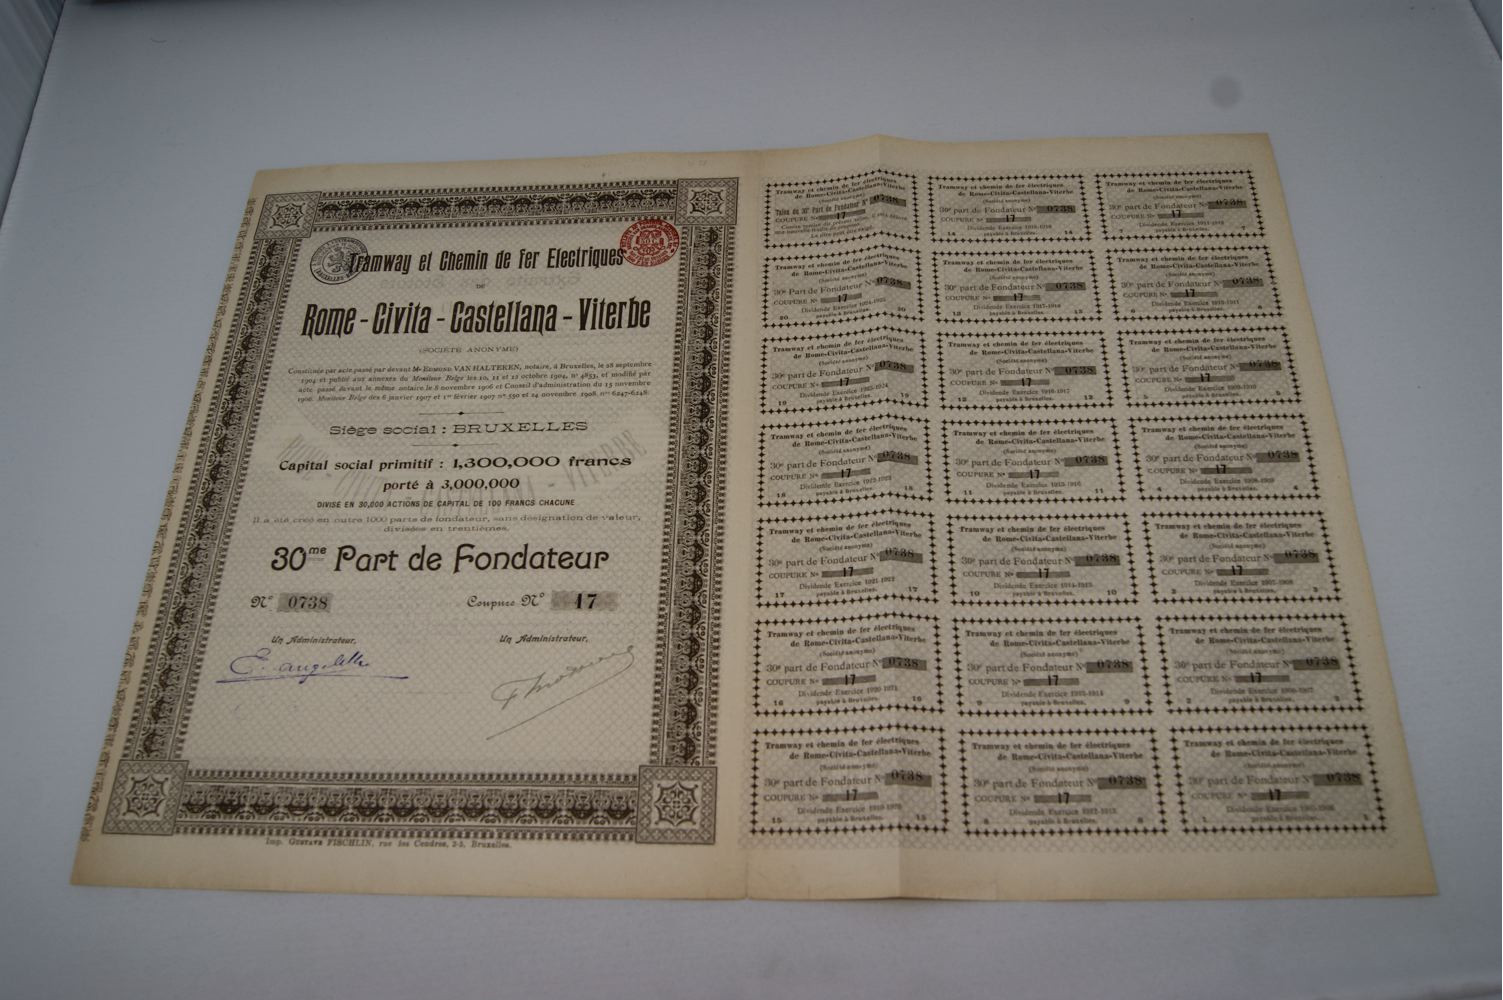 Tramway et Chemin de fer Electriques
DE
Rome - Civita - Castellana - Viterbe
(SOCIÉTÉ ANONYME)
Constituée par acte passé par devant Me EDMOND VAN HALTEREN, notaire, à Bruxelles, le 28 septembre
1904 et publié aux annexes du Moniteur Belge les 10, 11 et 12 octobre 1904, n° 4853, et modifié par
acte passé devant le même notaire le 8 novembre 1906 et Conseil d'administration du 15 novembre
1906. Moniteur Belge des 6 janvier 1907 et 1er février 1907 n° 550 et 24 novembre 1908. nos 6247-6248.
Siège social : BRUXELLES
Capital social primitif : 1,300,000 francs
porté à 3,000,000
DIVISÉ EN 30,000 ACTIONS DE CAPITAL DE 100 FRANCS CHACUNE
Il a été créé en outre 1000 parts de fondateur, sans désignation de valeur,
divisées en trentièmes.
30me Part de Fondateur
N° 0738 Coupure N° 17
Un Administrateur, Un Administrateur,
Imp. GUSTAVE FISCHLIN, rue les Cendres, 2-5, Bruxelles.
Tramway et chemin de fer électriques
de Rome-Civita-Castellana-Viterbe
(Société anonyme)
Talon du 30e Part de Fondateur N° 0738
COUPURE N° 17
Tramway et chemin de fer électriques
de Rome-Civita-Castellana-Viterbe
(Société anonyme)
30e part de Fondateur N° 0738
COUPURE N° 17
Dividende Exercice 1918-1919
14 payable à Bruxelles. 14
Tramway et chemin de fer électriques
de Rome-Civita-Castellana-Viterbe
(Société anonyme)
30e part de Fondateur N° 0738
COUPURE N° 17
Dividende Exercice 1911-1912
7 payable à Bruxelles. 7
Tramway et chemin de fer électriques
de Rome-Civita-Castellana-Viterbe
(Société anonyme)
30e Part de Fondateur N° 0738
COUPURE N° 17
Dividende Exercice 1924-1925
20 payable à Bruxelles. 20
Tramway et chemin de fer électriques
de Rome-Civita-Castellana-Viterbe
(Société anonyme)
30e part de Fondateur N° 0738
COUPURE N° 17
Dividende Exercice 1917-1918
13 payable à Bruxelles. 13
Tramway et chemin de fer électriques
de Rome-Civita-Castellana-Viterbe
(Société anonyme)
30e part de Fondateur N° 0738
COUPURE N° 17
Dividende Exercice 1910-1911
6 payable à Bruxelles. 6
Tramway et chemin de fer électriques
de Rome-Civita-Castellana-Viterbe
(Société anonyme)
30e part de Fondateur N° 0738
COUPURE N° 17
Dividende Exercice 1923-1924
19 payable à Bruxelles. 19
Tramway et chemin de fer électriques
de Rome-Civita-Castellana-Viterbe
(Société anonyme)
30e part de Fondateur N° 0738
COUPURE N° 17
Dividende Exercice 1916-1917
12 payable à Bruxelles. 12
Tramway et chemin de fer électriques
de Rome-Civita-Castellana-Viterbe
(Société anonyme)
30e part de Fondateur N° 0738
COUPURE N° 17
Dividende Exercice 1909-1910
5 payable à Bruxelles. 5
Tramway et chemin de fer électriques
de Rome-Civita-Castellana-Viterbe
(Société anonyme)
30e part de Fondateur N° 0738
COUPURE N° 17
Dividende Exercice 1922-1923
18 payable à Bruxelles. 18
Tramway et chemin de fer électriques
de Rome-Civita-Castellana-Viterbe
(Société anonyme)
30e part de Fondateur N° 0738
COUPURE N° 17
Dividende Exercice 1915-1916
11 payable à Bruxelles. 11
Tramway et chemin de fer électriques
de Rome-Civita-Castellana-Viterbe
(Société anonyme)
30e part de Fondateur N° 0738
COUPURE N° 17
Dividende Exercice 1908-1909
4 payable à Bruxelles. 4
Tramway et chemin de fer électriques
de Rome-Civita-Castellana-Viterbe
(Société anonyme)
30e part de Fondateur N° 0738
COUPURE N° 17
Dividende Exercice 1921-1922
17 payable à Bruxelles. 17
Tramway et chemin de fer électriques
de Rome-Civita-Castellana-Viterbe
(Société anonyme)
30e part de Fondateur N° 0738
COUPURE N° 17
Dividende Exercice 1914-1915
10 payable à Bruxelles. 10
Tramway et chemin de fer électriques
de Rome-Civita-Castellana-Viterbe
(Société anonyme)
30e part de Fondateur N° 0738
COUPURE N° 17
Dividende Exercice 1907-1908
3 payable à Bruxelles. 3
Tramway et chemin de fer électriques
de Rome-Civita-Castellana-Viterbe
(Société anonyme)
30e part de Fondateur N° 0738
COUPURE N° 17
Dividende Exercice 1920-1921
16 payable à Bruxelles. 16
Tramway et chemin de fer électriques
de Rome-Civita-Castellana-Viterbe
(Société anonyme)
30e part de Fondateur N° 0738
COUPURE N° 17
Dividende Exercice 1913-1914
9 payable à Bruxelles. 9
Tramway et chemin de fer électriques
de Rome-Civita-Castellana-Viterbe
(Société anonyme)
30e part de Fondateur N° 0738
COUPURE N° 17
Dividende Exercice 1906-1907
2 payable à Bruxelles. 2
Tramway et chemin de fer électriques
de Rome-Civita-Castellana-Viterbe
(Société anonyme)
30e part de Fondateur N° 0738
COUPURE N° 17
Dividende Exercice 1919-1920
15 payable à Bruxelles. 15
Tramway et chemin de fer électriques
de Rome-Civita-Castellana-Viterbe
(Société anonyme)
30e part de Fondateur N° 0738
COUPURE N° 17
Dividende Exercice 1912-1913
8 payable à Bruxelles. 8
Tramway et chemin de fer électriques
de Rome-Civita-Castellana-Viterbe
(Société anonyme)
30e part de Fondateur N° 0738
COUPURE N° 17
Dividende Exercice 1905-1906
1 payable à Bruxelles. 1